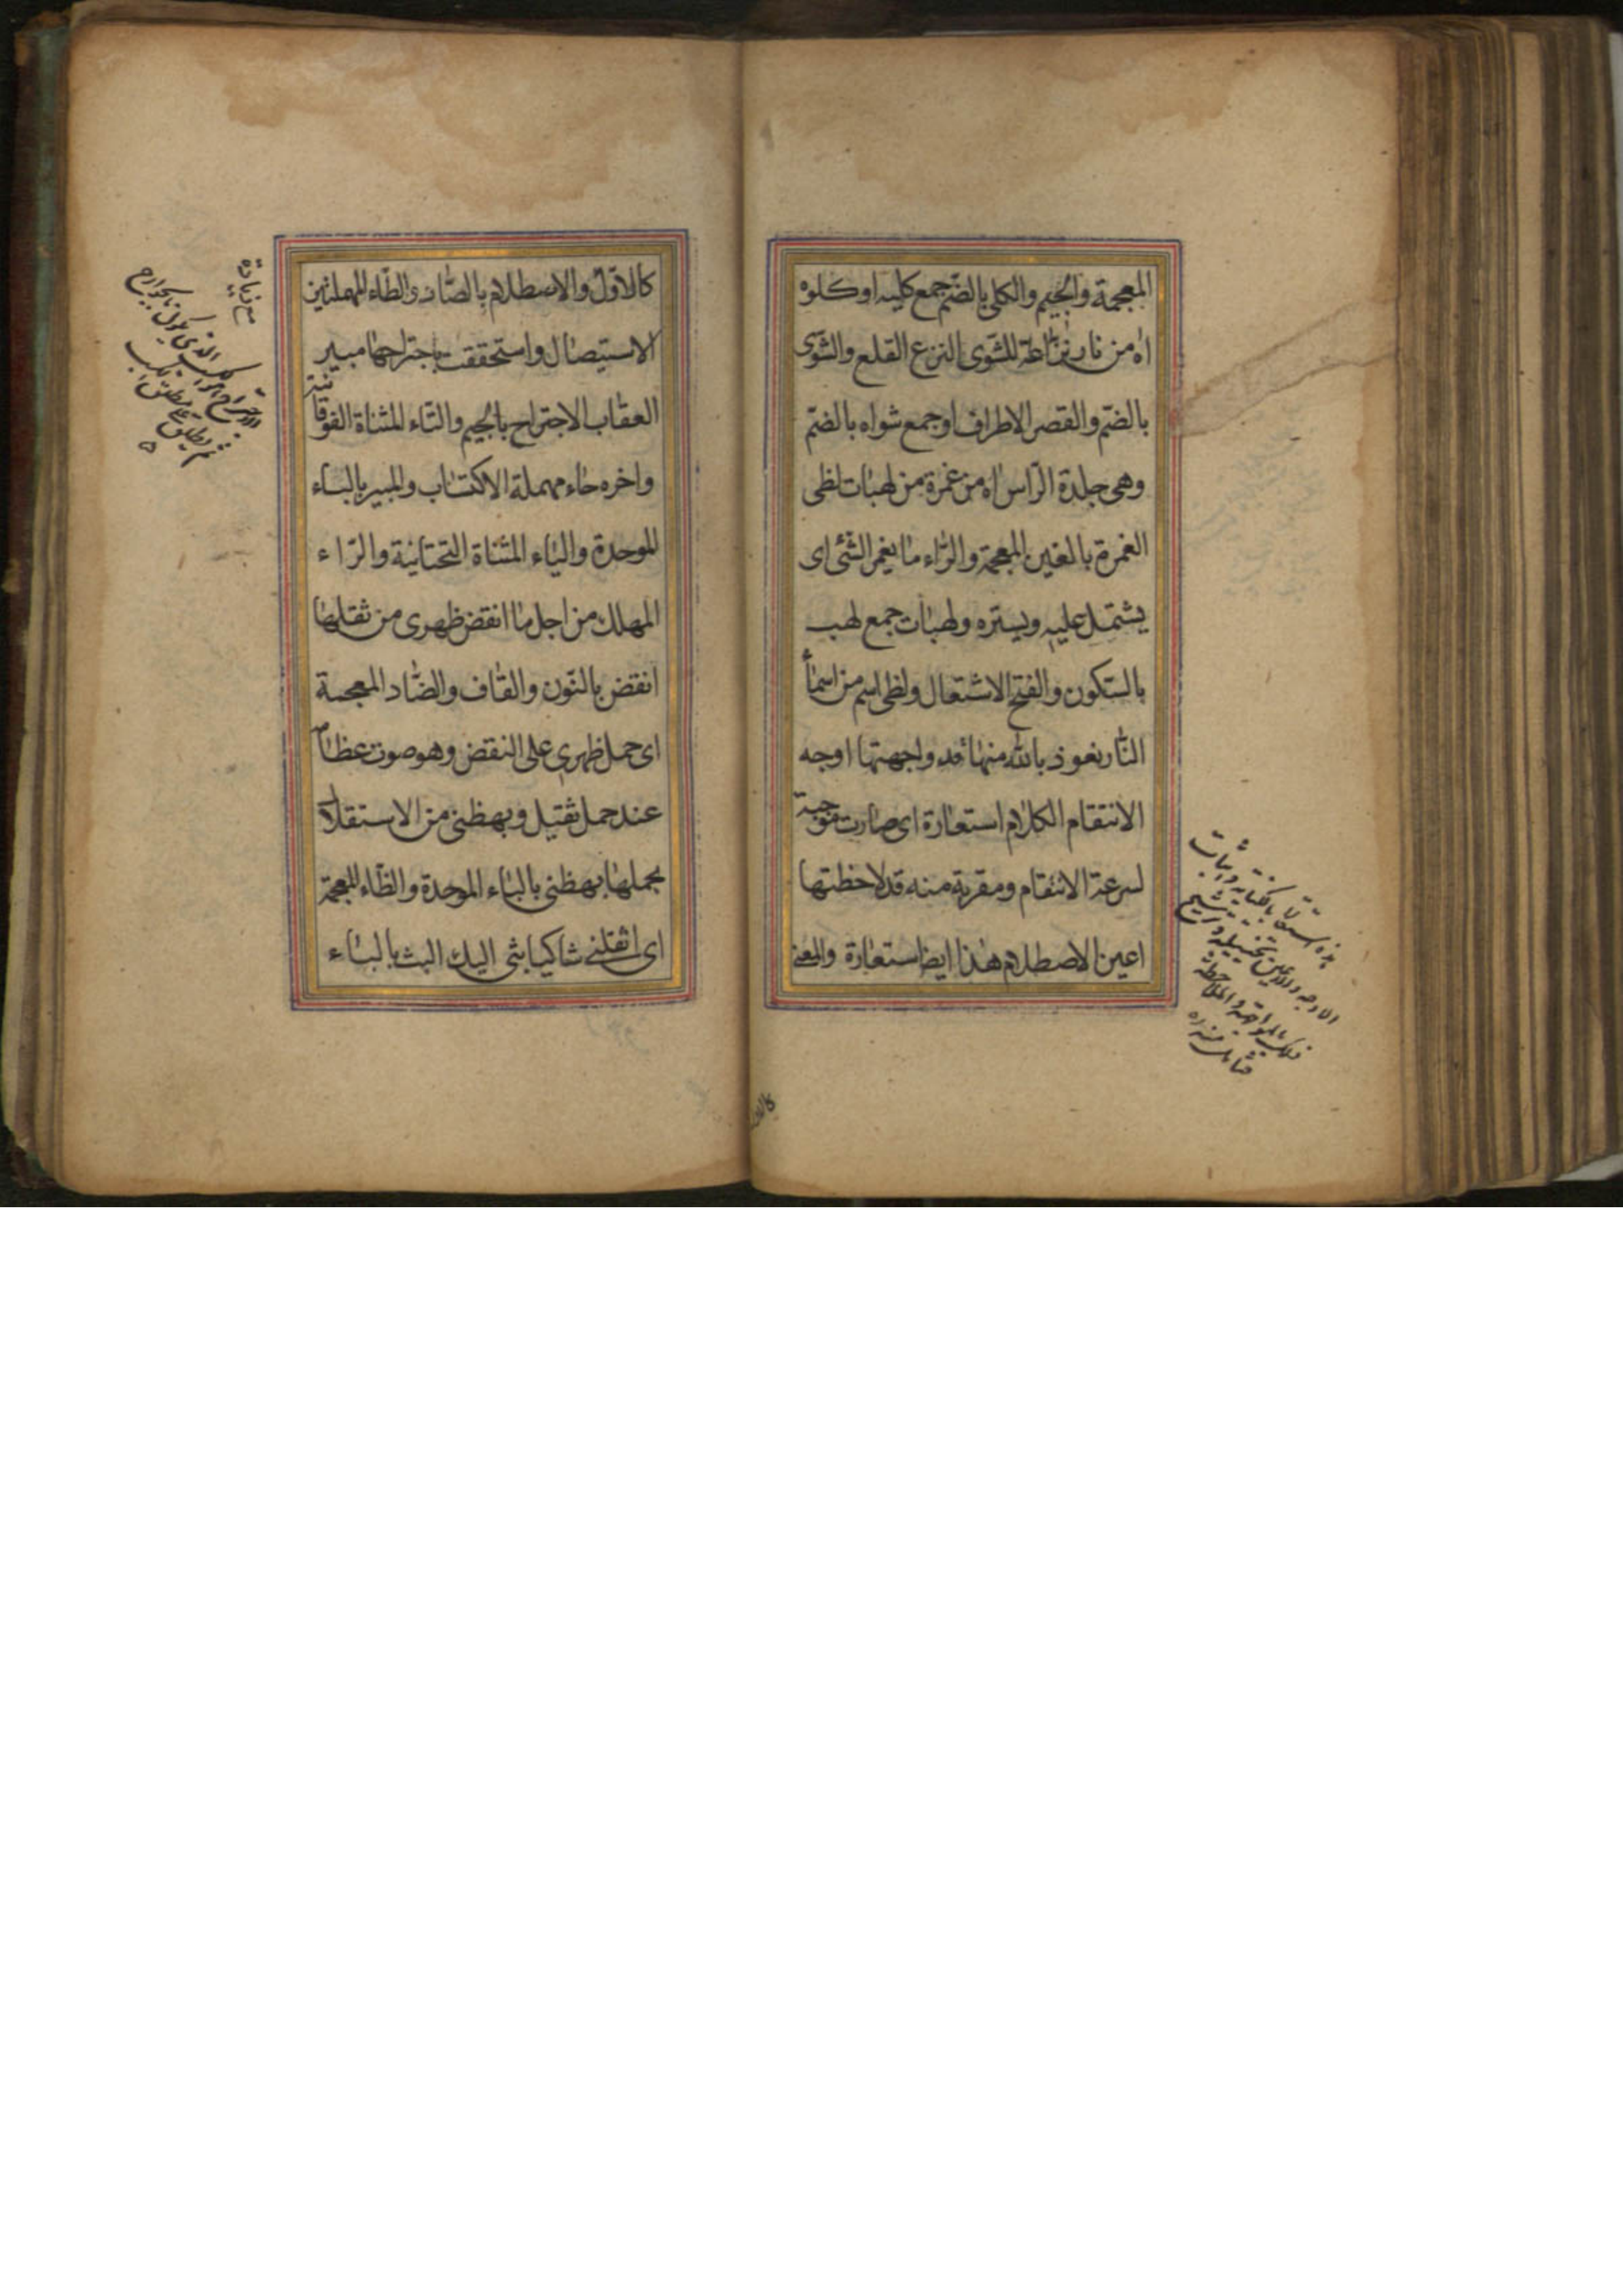 المعجمة والجيم والكلى بالضم جمع كليه او كلوه
اه من نار نزاعة للشوى النزع القلع والشوى
بالضم والقصر الاطراف او جمع شواه بالضم
وهى جلدة الراس اه من غمرة من لهبات لظى
الغمرة بالغين المعجمة والراء ما يغمر الشئ اى
يشتمل عليه ويستره ولهبات جمع لهب
بالسكون والفتح الاشتعال ولظى اسم من اسماء
النار نعوذ بالله منها قد واجهتها اوجه
الانتقام الكلام استعارة اى صارت موجبة
لسرعة الانتقام ومقربة منه قد لاحظتها
اعين الاصطلام هذا ايضا استعارة والمعنى
كالاول والاصطلام بالصاد والطاء المهملتين
الاستيصال واستحققت باجتراحها مبير
العقاب الاجتراح بالجيم والتاء المثناة الفوقانية
واخره حاء مهملة الاكتساب والمبير بالباء
الموحدة والياء المثناة التحتانية والراء
المهلك من اجل ما انقض ظهرى من ثقلها
انقض بالنون والقاف والضاد المعجمة
اى حمل ظهرى على النقض وهو صوت عظام
عند حمل ثقيل وبهظنى من الاستقلال
بحملها بهظنى بالباء الموحدة والظاء المعجمة
اى اثقلنى شاكيا بثى اليك البث بالباء
مع زيادة